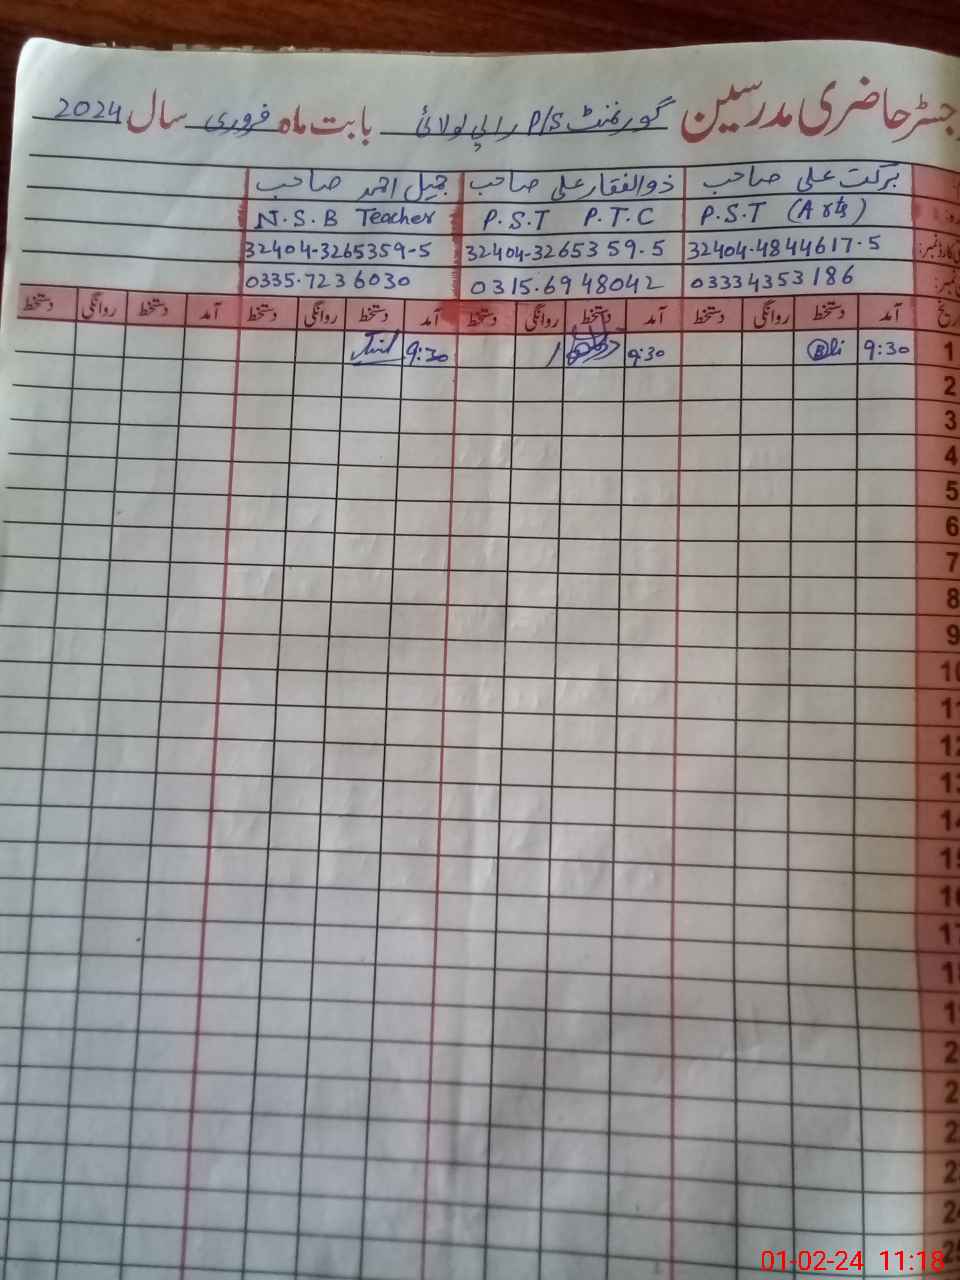 رجسٹر حاضری مدرسین گورنمنٹ P/S بابت ماہ فروری سال 2024
برکت علی صاحب ذوالفقار علی صاحب جمیل احمد صاحب
P.S.T (Arts) P.S.T P.T.C N.S.B Teacher
32404-4844617-5 32404-3265359-5 32404-3265359-5
03334353186 0315-6948042 0335-7236030
آمد دستخط روانگی دستخط آمد دستخط روانگی دستخط آمد دستخط روانگی دستخط آمد دستخط روانگی دستخط
1 9:30 9:30 9:30
2
3
4
5
6
7
8
9
10
11
12
13
14
15
16
17
18
19
24
25
01-02-24 11:18